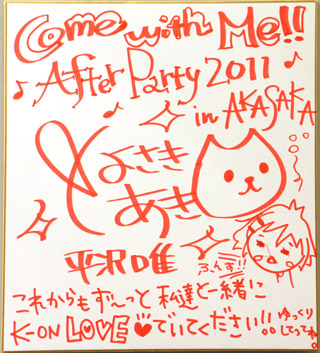 Come with Me!!
♪ After Party 2011 ♪
in AKASAKA
とよさき
あき
平沢唯
ふんす!!
これからもず〜っと 私達と一緒に
K-ON LOVE♥でいてください!!
ゆっくり
してってね